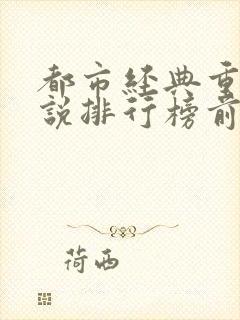 都市经典重
说排行榜前
荷西